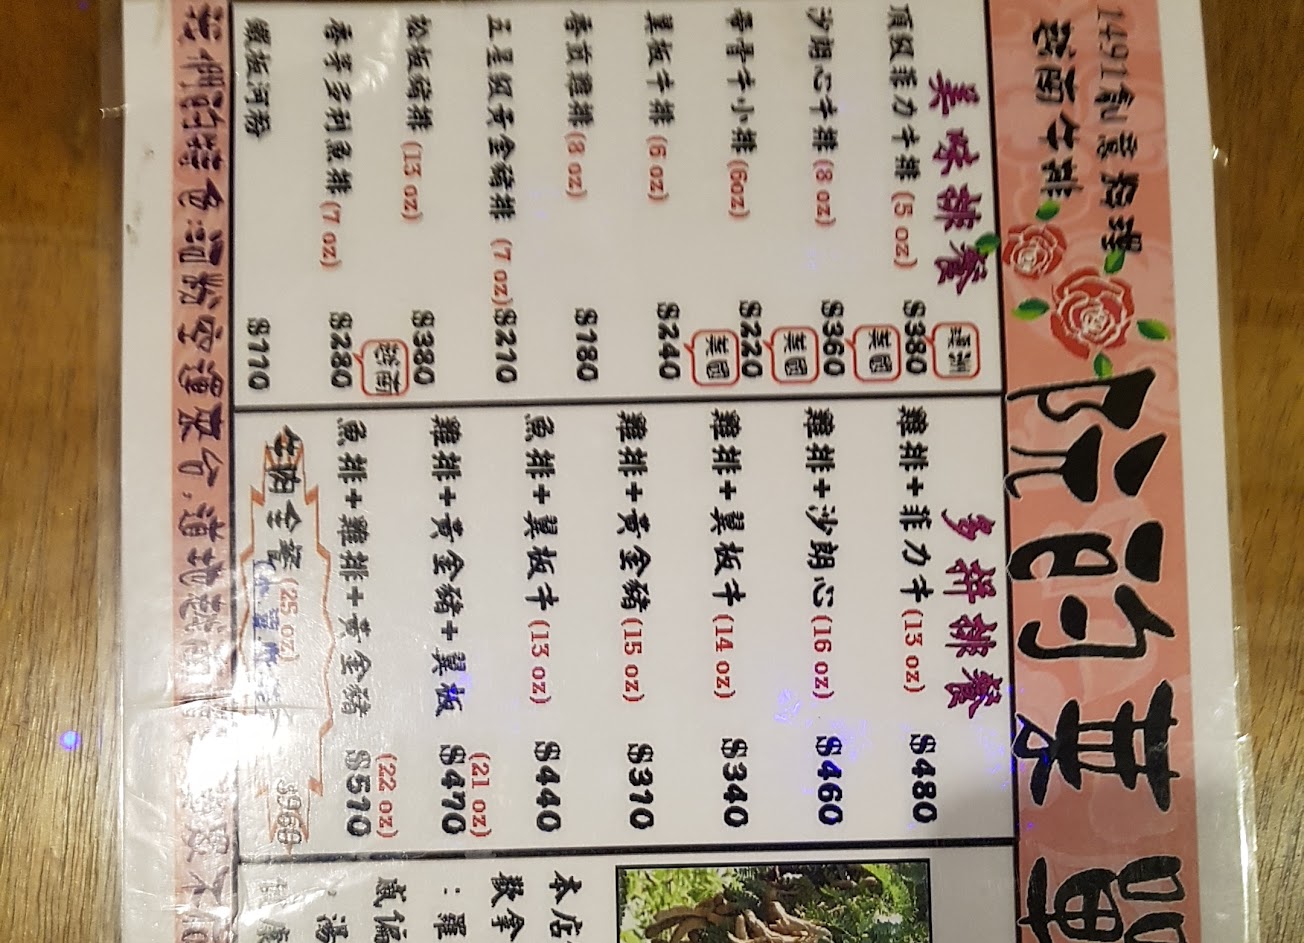 1491創意料理
越南牛排
阮的菜單
美味排餐
頂級菲力牛排 (5 oz) $380 澳洲
沙朗心牛排 (8 oz) $360 美國
帶骨牛小排 (6oz) $220 美國
翼板牛排 (6 oz) $240 美國
香煎雞排 (8 oz) $180
五星級黃金豬排 (7 oz) $210
松板豬排 (13 oz) $380
香茅多利魚排 (7 oz) $280 越南
鐵板河粉 $110
多拼排餐
雞排+菲力牛 (13 oz) $480
雞排+沙朗心 (16 oz) $460
雞排+翼板牛 (14 oz) $340
雞排+黃金豬 (15 oz) $310
魚排+翼板牛 (13 oz) $440
雞排+黃金豬+翼板 (21 oz) $470
魚排+雞排+黃金豬 (22 oz) $510
牛肉全餐 (25 oz) $960
本店
數拿
：羅
感偏
，湯
我們的特色:河粉空運來台,道地越南